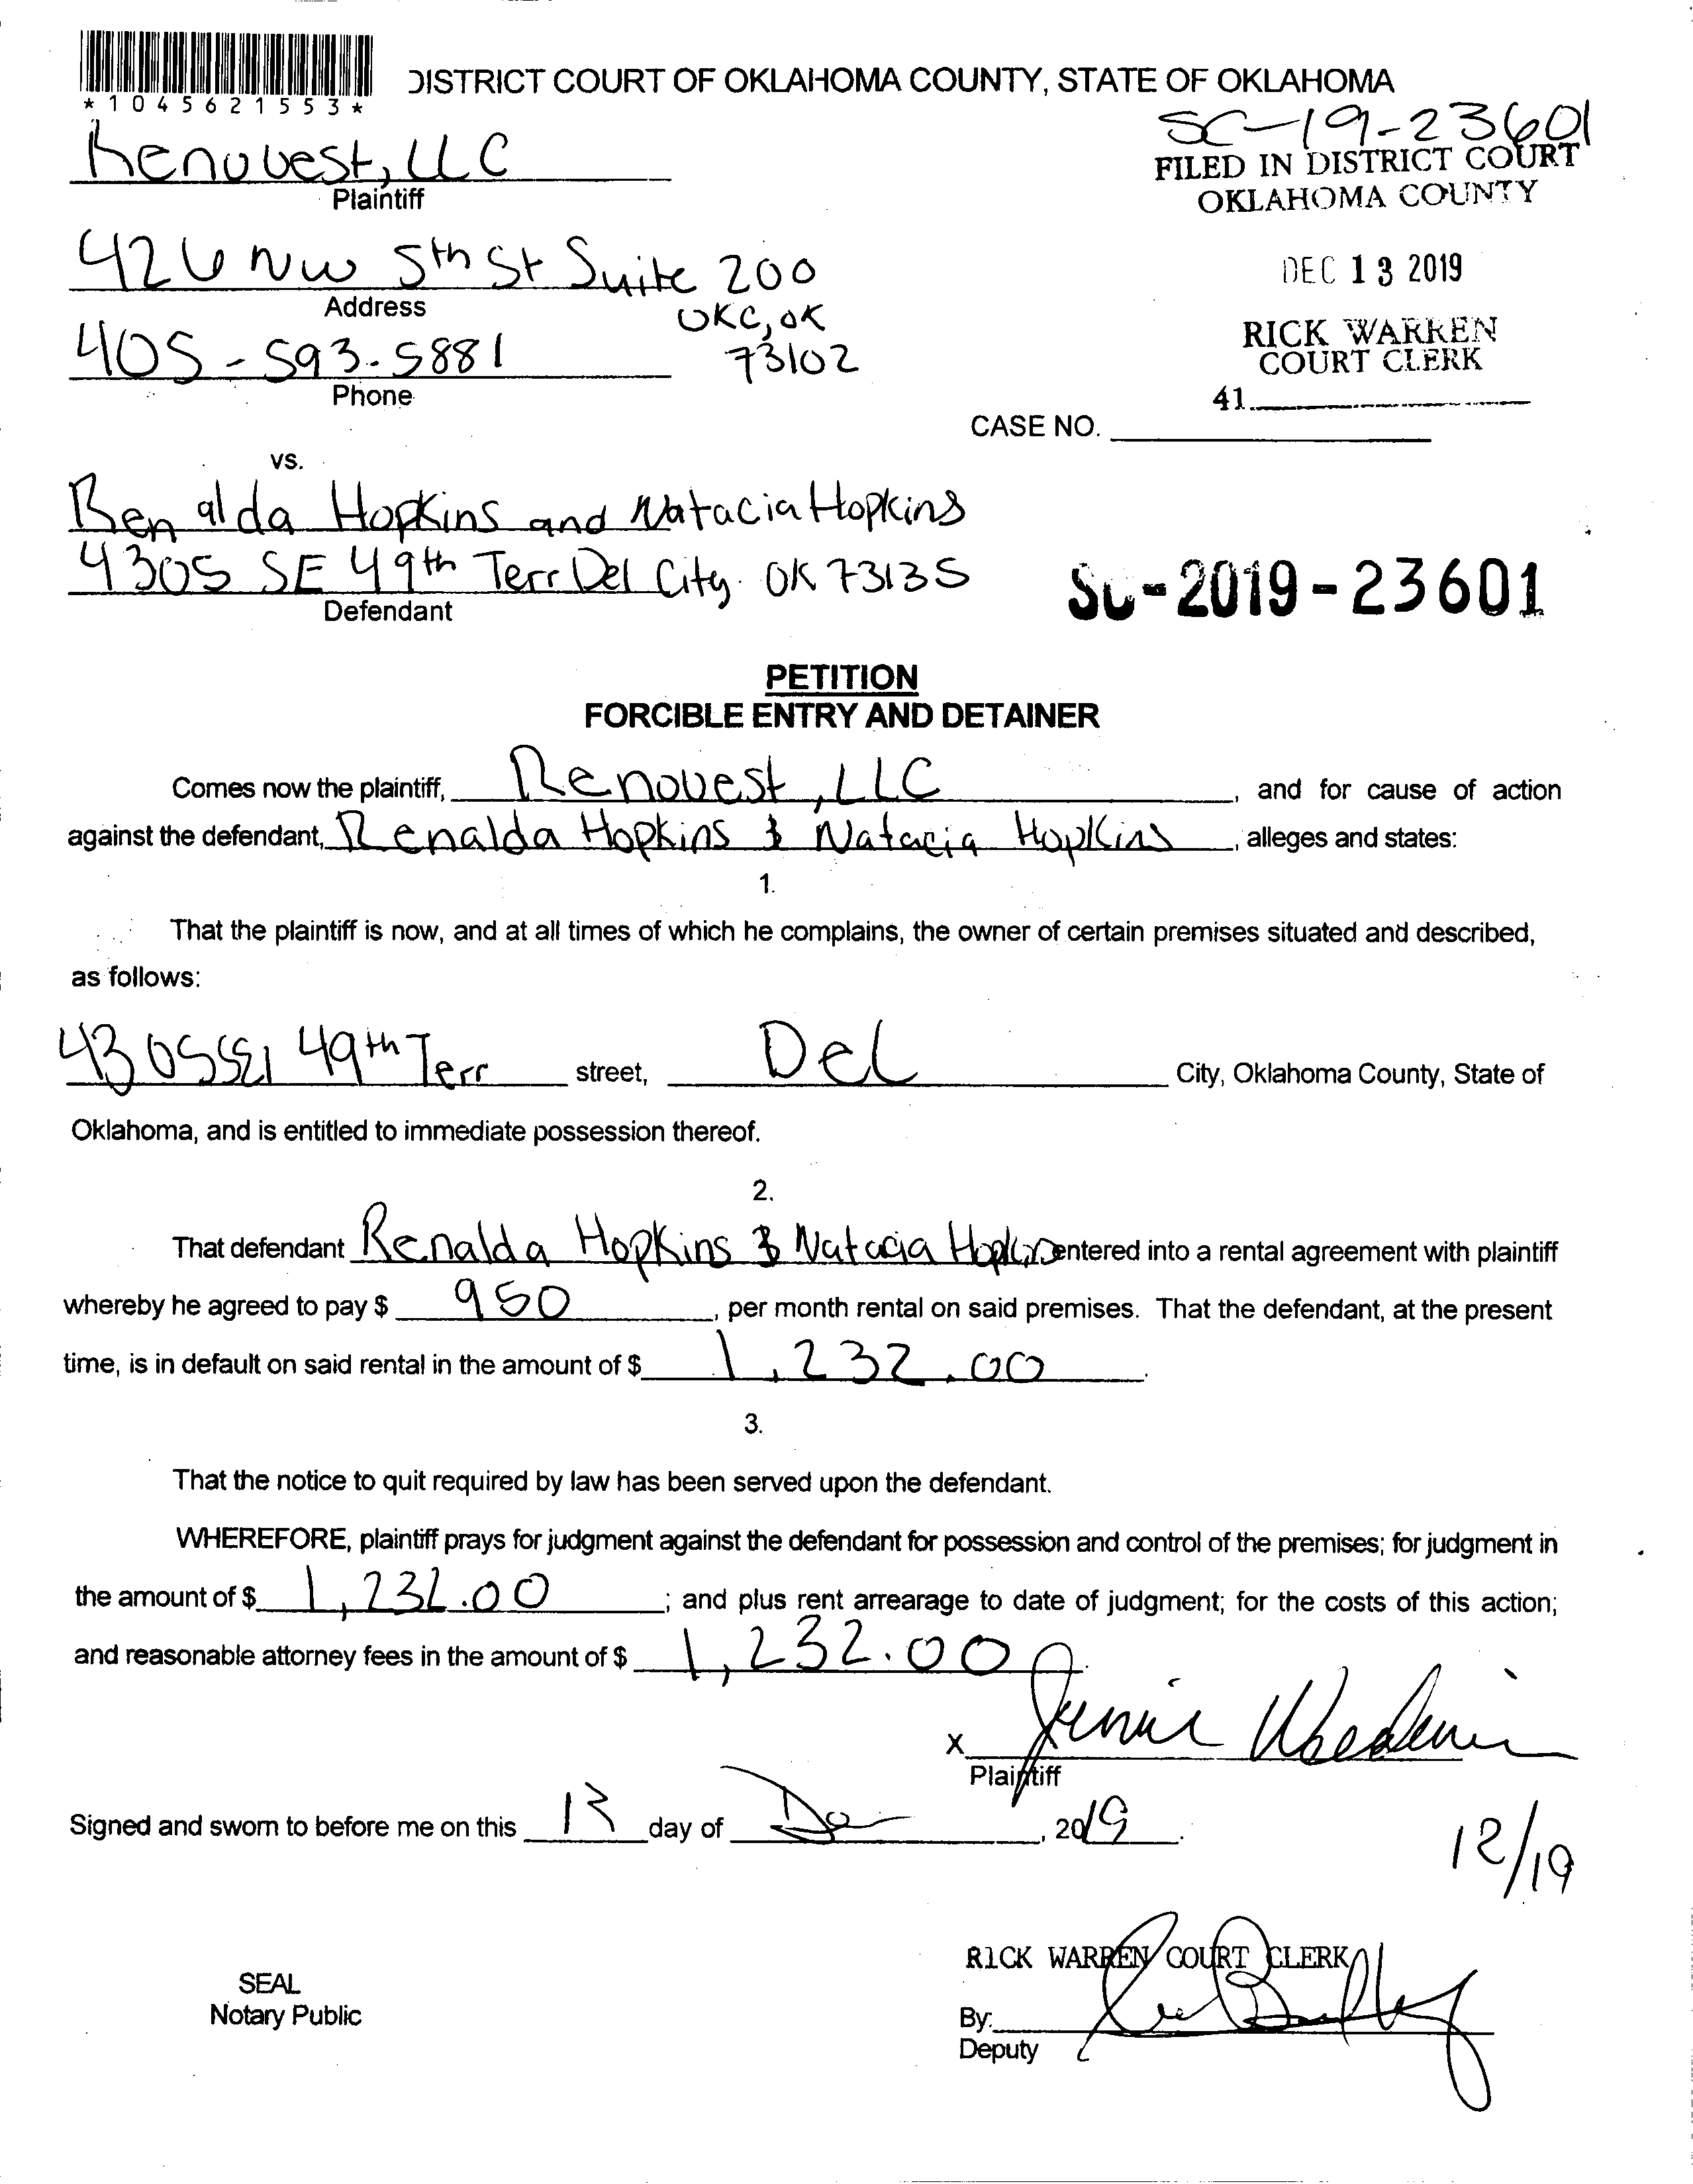 *1045621553*
DISTRICT COURT OF OKLAHOMA COUNTY, STATE OF OKLAHOMA
SC-19-23601
Renovest, LLC
Plaintiff
FILED IN DISTRICT COURT
OKLAHOMA COUNTY
426 NW 5th St Suite 200
Address
OKC, OK
73102
DEC 13 2019
405-593-5881
Phone
RICK WARREN
COURT CLERK
41.
CASE NO.
vs.
Renalda Hopkins and Natacia Hopkins
4305 SE 49th Terr Del City OK 73135
Defendant
SC-2019-23601
PETITION
FORCIBLE ENTRY AND DETAINER
Comes now the plaintiff, Renovest, LLC, and for cause of action
against the defendant, Renalda Hopkins & Natacia Hopkins, alleges and states:
1.
That the plaintiff is now, and at all times of which he complains, the owner of certain premises situated and described,
as follows:
4305 49th Terr street, Del City, Oklahoma County, State of
Oklahoma, and is entitled to immediate possession thereof.
2.
That defendant Renalda Hopkins & Natacia Hopkins entered into a rental agreement with plaintiff
whereby he agreed to pay $ 950, per month rental on said premises. That the defendant, at the present
time, is in default on said rental in the amount of $ 1,232.00.
3.
That the notice to quit required by law has been served upon the defendant.
WHEREFORE, plaintiff prays for judgment against the defendant for possession and control of the premises; for judgment in
the amount of $ 1,232.00; and plus rent arrearage to date of judgment; for the costs of this action;
and reasonable attorney fees in the amount of $ 1,232.00.
X
Plaintiff
Signed and sworn to before me on this 13 day of Dec, 2019.
12/19
RICK WARREN COURT CLERK
SEAL
Notary Public
By:
Deputy